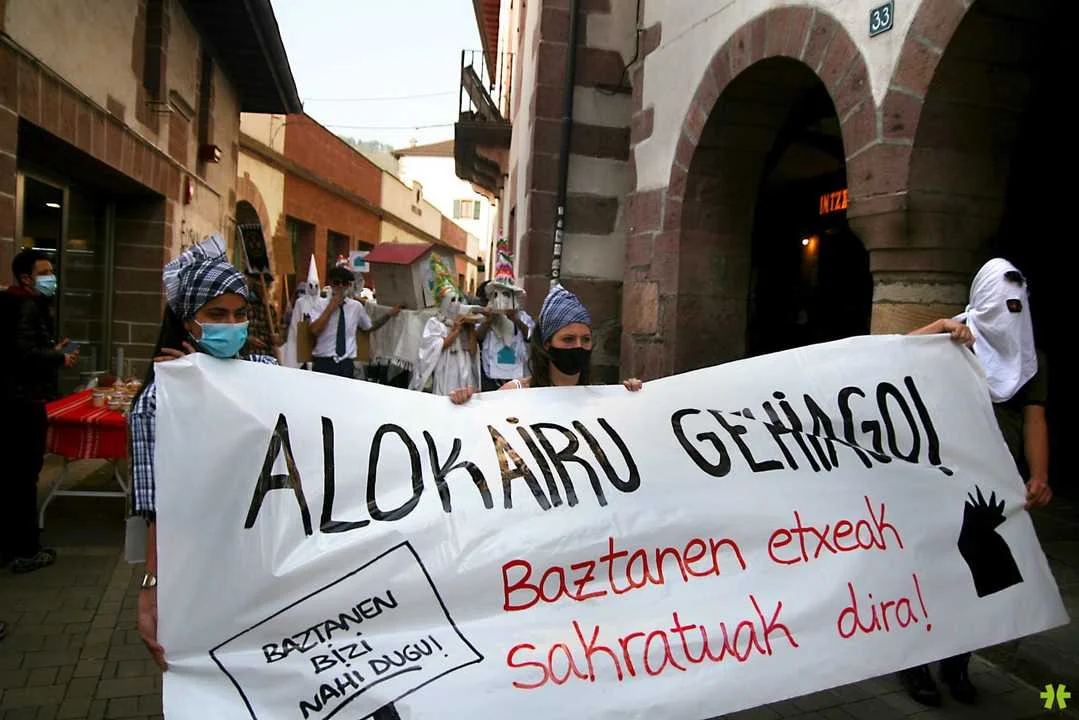 33
INTZA
ALOKAIRU GEHIAGO!
Baztanen etxeak
sakratuak dira!
BAZTANEN
BIZI
NAHI DUGU!